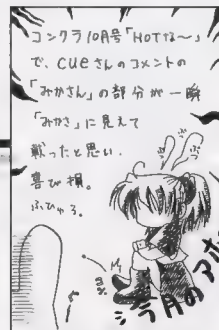 コンクラ10月号「HOTな～」
で、cueさんのコメントの
「みかさん」の部分が一瞬
「みかさ」に見えて
載ったと思い、
喜び損。
ふひゅる。
今月のアホ